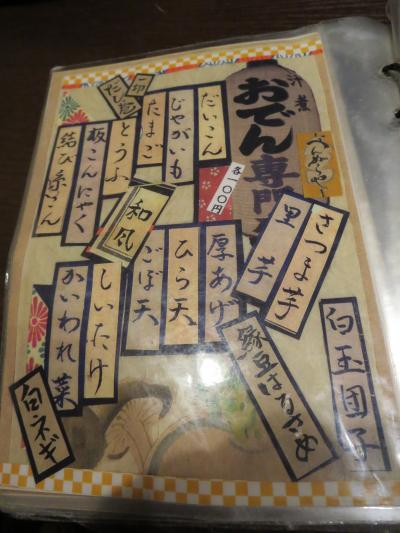 汁煮
おでん専門
各一〇〇円
だいこん
じゃがいも
たまご
とうふ
板こんにゃく
結び糸こん
和風
さつま芋
里芋
厚あげ
ひら天
ごぼ天
しいたけ
かいわれ菜
白ネギ
緑豆はるさめ
白玉団子